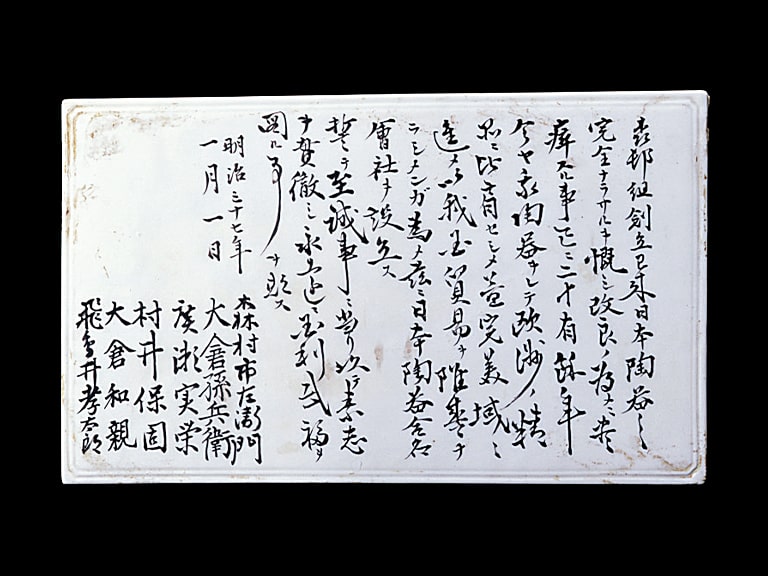 森邨組創立已来日本陶器ノ
完全ナラサルヲ慨シ改良ノ為ニ尽
瘁スル事已ニ二十有餘年
今ヤ我陶器ヲシテ欧洲ノ精
品ニ比肩セシメ益完美ノ域ニ
達シメ以我国貿易ヲ隆盛ナ
ラシメンガ為メ茲ニ日本陶器合名
會社ヲ設立ス
誓テ至誠事ニ当リ以テ素志
ヲ貫徹シ永遠ニ国利民福ヲ
図ル事ヲ期ス
明治三十七年
一月一日
森村市左衛門
大倉孫兵衛
廣瀬実栄
村井保固
大倉和親
飛鳥井孝太郎